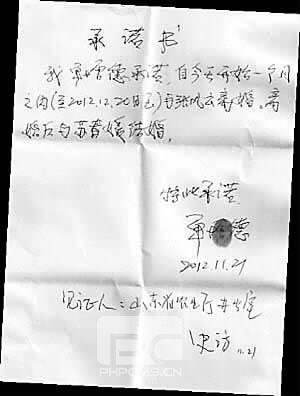 承诺书
我单增德承诺自今天开始一个月
之内(至2012.12.20日)与张凤云离婚。离
婚后与苏春媛结婚。
特此承诺
单增德
2012.11.21
见证人：山东省农业厅办公室
11.21
PHPCMS.CN